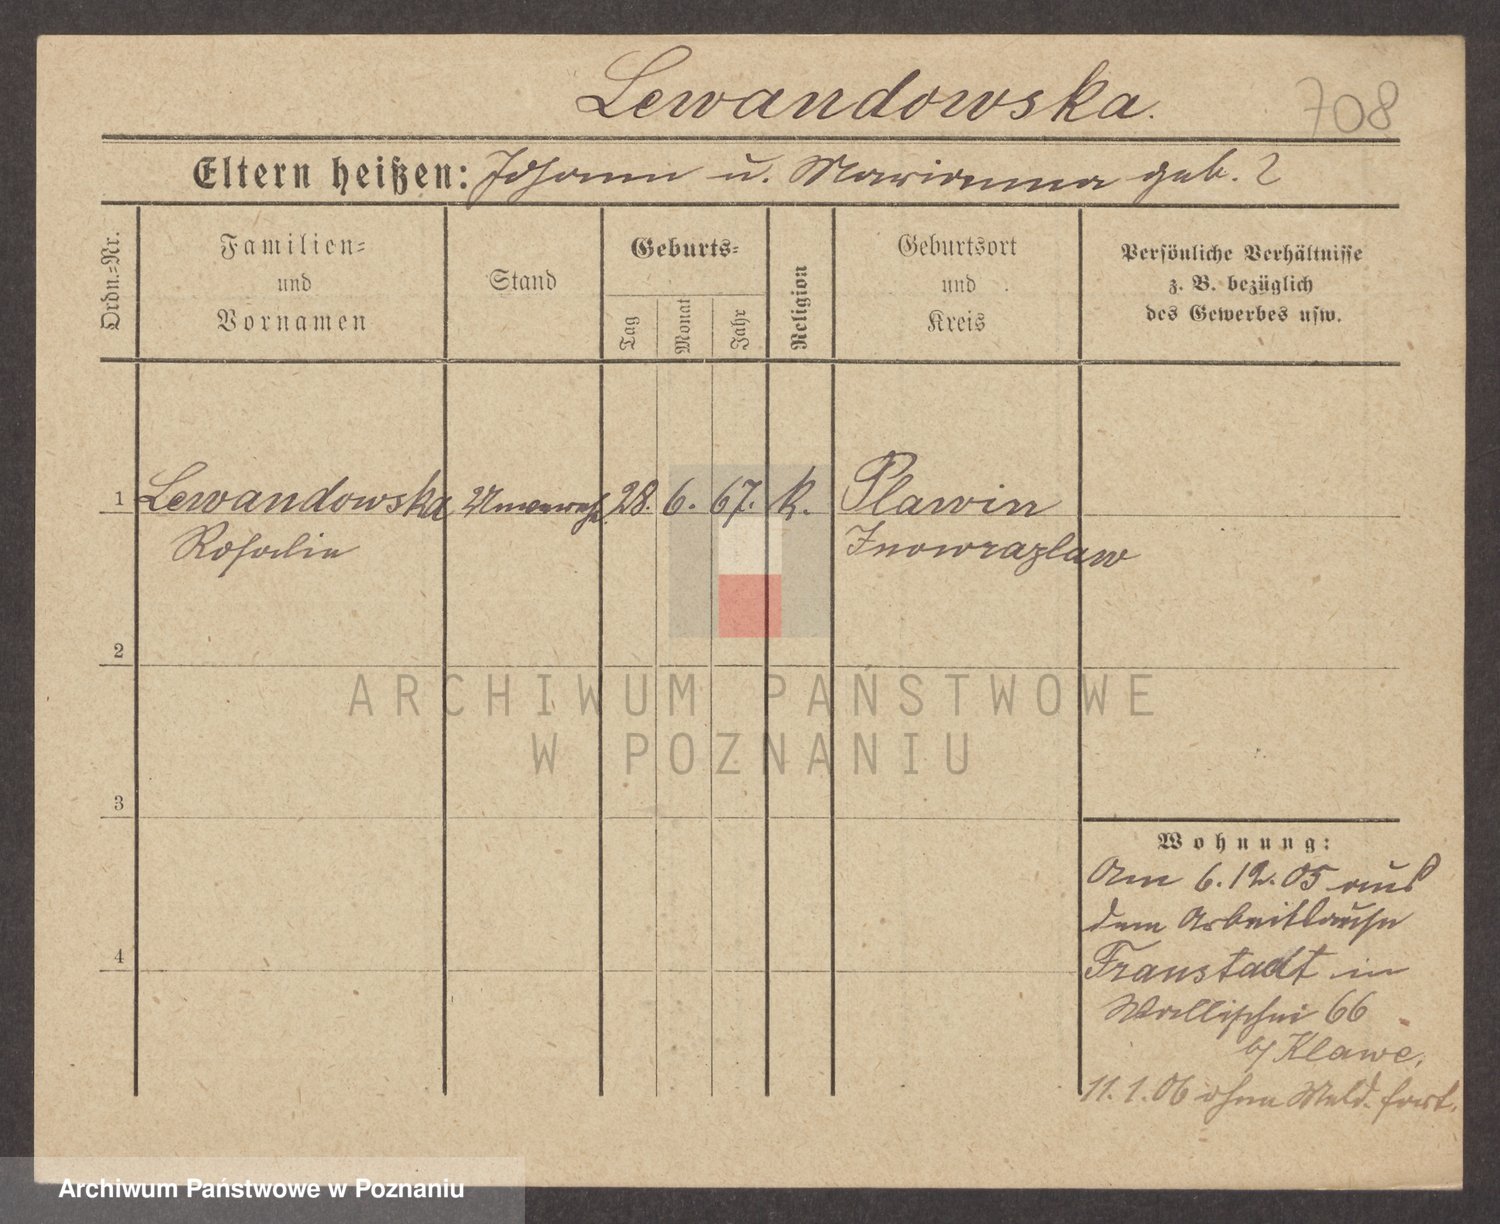 Lewandowska.
708
Eltern heißen: Johann u. Marianna geb. ?
Ordn.=Nr.
Familien=
und
Vornamen
Stand
Geburts=
Tag
Monat
Jahr
Religion
Geburtsort
und
Kreis
Persönliche Verhältnisse
z. B. bezüglich
des Gewerbes usw.
1 Lewandowska 28. 6. 67. k. Plawin
Rosalie Inowrazlaw
2
3
4
ARCHIWUM PAŃSTWOWE
W POZNANIU
Wohnung:
Am 6.12.05 aus
dem Arbeitshause
Fraustadt in
Wallischei 66
b/ Klawe.
11.1.06 ohne Meld. fort.
Archiwum Państwowe w Poznaniu